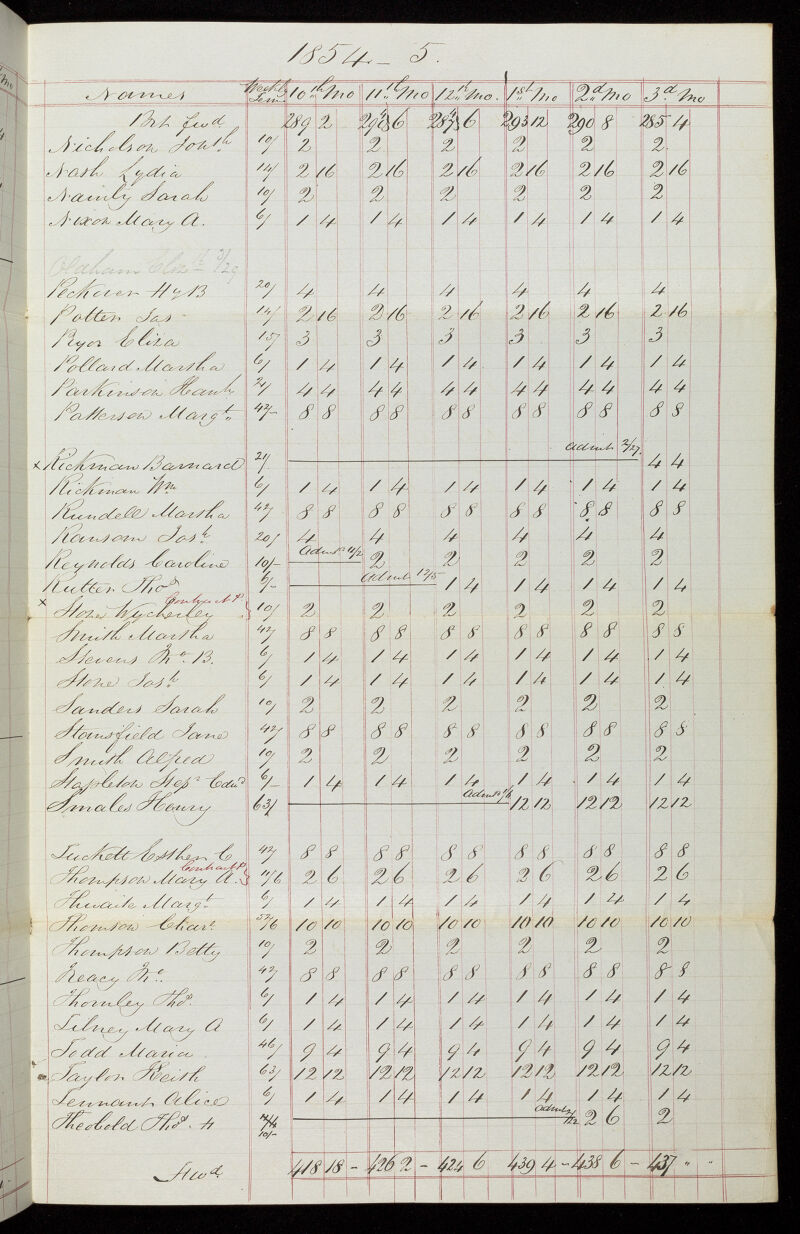 1854 - 5.
Names Weekly Sum 10th Mo 11th Mo 12th Mo. 1st Mo 2d Mo 3d Mo
Brt fwd 289 2 290 6 287 6 293 12 290 8 285 4
Nicholson Jonth 10/ 2 2 2 2 2 2
Nash Lydia 14/ 2 16 2 16 2 16 2 16 2 16 2 16
Nainby Sarah 10/ 2 2 2 2 2 2
Nixon Mary A. 6/ 1 4 1 4 1 4 1 4 1 4 1 4
Oldham Elizth 3/29
Peckover Hy B 20/ 4 4 4 4 4 4
Potter Jas 14/ 2 16 2 16 2 16 2 16 2 16 2 16
Pryor Eliza 15/ 3 3 3 3 3 3
Pollard Martha 6/ 1 4 1 4 1 4 1 4 1 4 1 4
Parkinson Hanh 21/ 4 4 4 4 4 4 4 4 4 4 4 4
Patterson Margt. 42/- 8 8 8 8 8 8 8 8 8 8 8 8
x Rickman Barnard 21/. admit 2/27. 4 4
Rickman Wm 6/ 1 4 1 4 1 4 1 4 1 4 1 4
Rundell Martha 42/ 8 8 8 8 8 8 8 8 8 8 8 8
Ransom Josh. 20/ 4 4 4 4 4 4
Reynolds Caroline 10/- admit 11/2 2 2 2 2 2
Rutter Thos 6/- admit 12/5 1 4 1 4 1 4 1 4
x Stone Wycherley 10/ 2 2 2 2 2 2
Smith Martha 42/ 8 8 8 8 8 8 8 8 8 8 8 8
Stevens B. 6/ 1 4 1 4 1 4 1 4 1 4 1 4
Stone Josh 6/ 1 4 1 4 1 4 1 4 1 4 1 4
Sanders Sarah 10/ 2 2 2 2 2 2
Stansfield Jane 42/ 8 8 8 8 8 8 8 8 8 8 8 8
Smith Alfred 10/ 2 2 2 2 2 2
Stapleton Edwd 6/- 1 4 1 4 1 4 1 4 1 4 1 4
Smales Henry 63/ admit 12 12 12 12 12 12
Tuckett Esther C 42/ 8 8 8 8 8 8 8 8 8 8 8 8
Thompson Mary A. 11/6 2 6 2 6 2 6 2 6 2 6 2 6
Thwaite Margt. 6/ 1 4 1 4 1 4 1 4 1 4 1 4
Thomson Chars. 52/6 10 10 10 10 10 10 10 10 10 10 10 10
Thompson Betty 10/ 2 2 2 2 2 2
Treacy 42/ 8 8 8 8 8 8 8 8 8 8 8 8
Thornley Thos. 6/ 1 4 1 4 1 4 1 4 1 4 1 4
Tilney Mary A 6/ 1 4 1 4 1 4 1 4 1 4 1 4
Todd Maria 46/ 9 4 9 4 9 4 9 4 9 4 9 4
Taylor Keith 63/ 12 12 12 12 12 12 12 12 12 12 12 12
Tennant Alice 6/ 1 4 1 4 1 4 1 4 1 4 1 4
Theobold Thos. H 10/- admit 2 6 2
Fwd. 418 18 - 426 2 - 424 6 439 4 - 438 6 - 437 " "